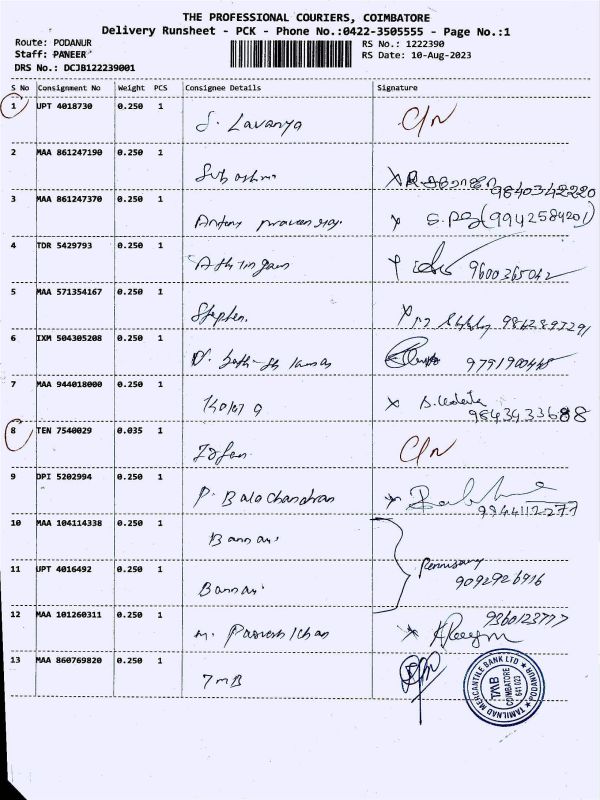 THE PROFESSIONAL COURIERS, COIMBATORE
Delivery Runsheet - PCK - Phone No.:0422-3505555 - Page No.:1
Route: PODANUR
RS No.: 1222390
Staff: PANEER
RS Date: 10-Aug-2023
DRS No.: DCJB122239001
S No Consignment No Weight PCS Consignee Details Signature
1 UPT 4018730 0.250 1 S. Lavanya C/N
2 MAA 861247190 0.250 1 9840342220
3 MAA 861247370 0.250 1 Antony (9942584201)
4 TDR 5429793 0.250 1 9600365042
5 MAA 571354167 0.250 1 Stephen. 9842897291
6 IXM 504305208 0.250 1
7 MAA 944018000 0.250 1 9843433688
8 TEN 7540029 0.035 1 Irfan C/N
9 DPI 5202994 0.250 1 P. Balachandran 9944112277
10 MAA 104114338 0.250 1 Bannari
11 UPT 4016492 0.250 1 Bannari 9092926916
12 MAA 101260311 0.250 1 9360123777
13 MAA 860769820 0.250 1 TMB
TAMILNAD MERCANTILE BANK LTD
PODANUR
TMB
COIMBATORE
641 023